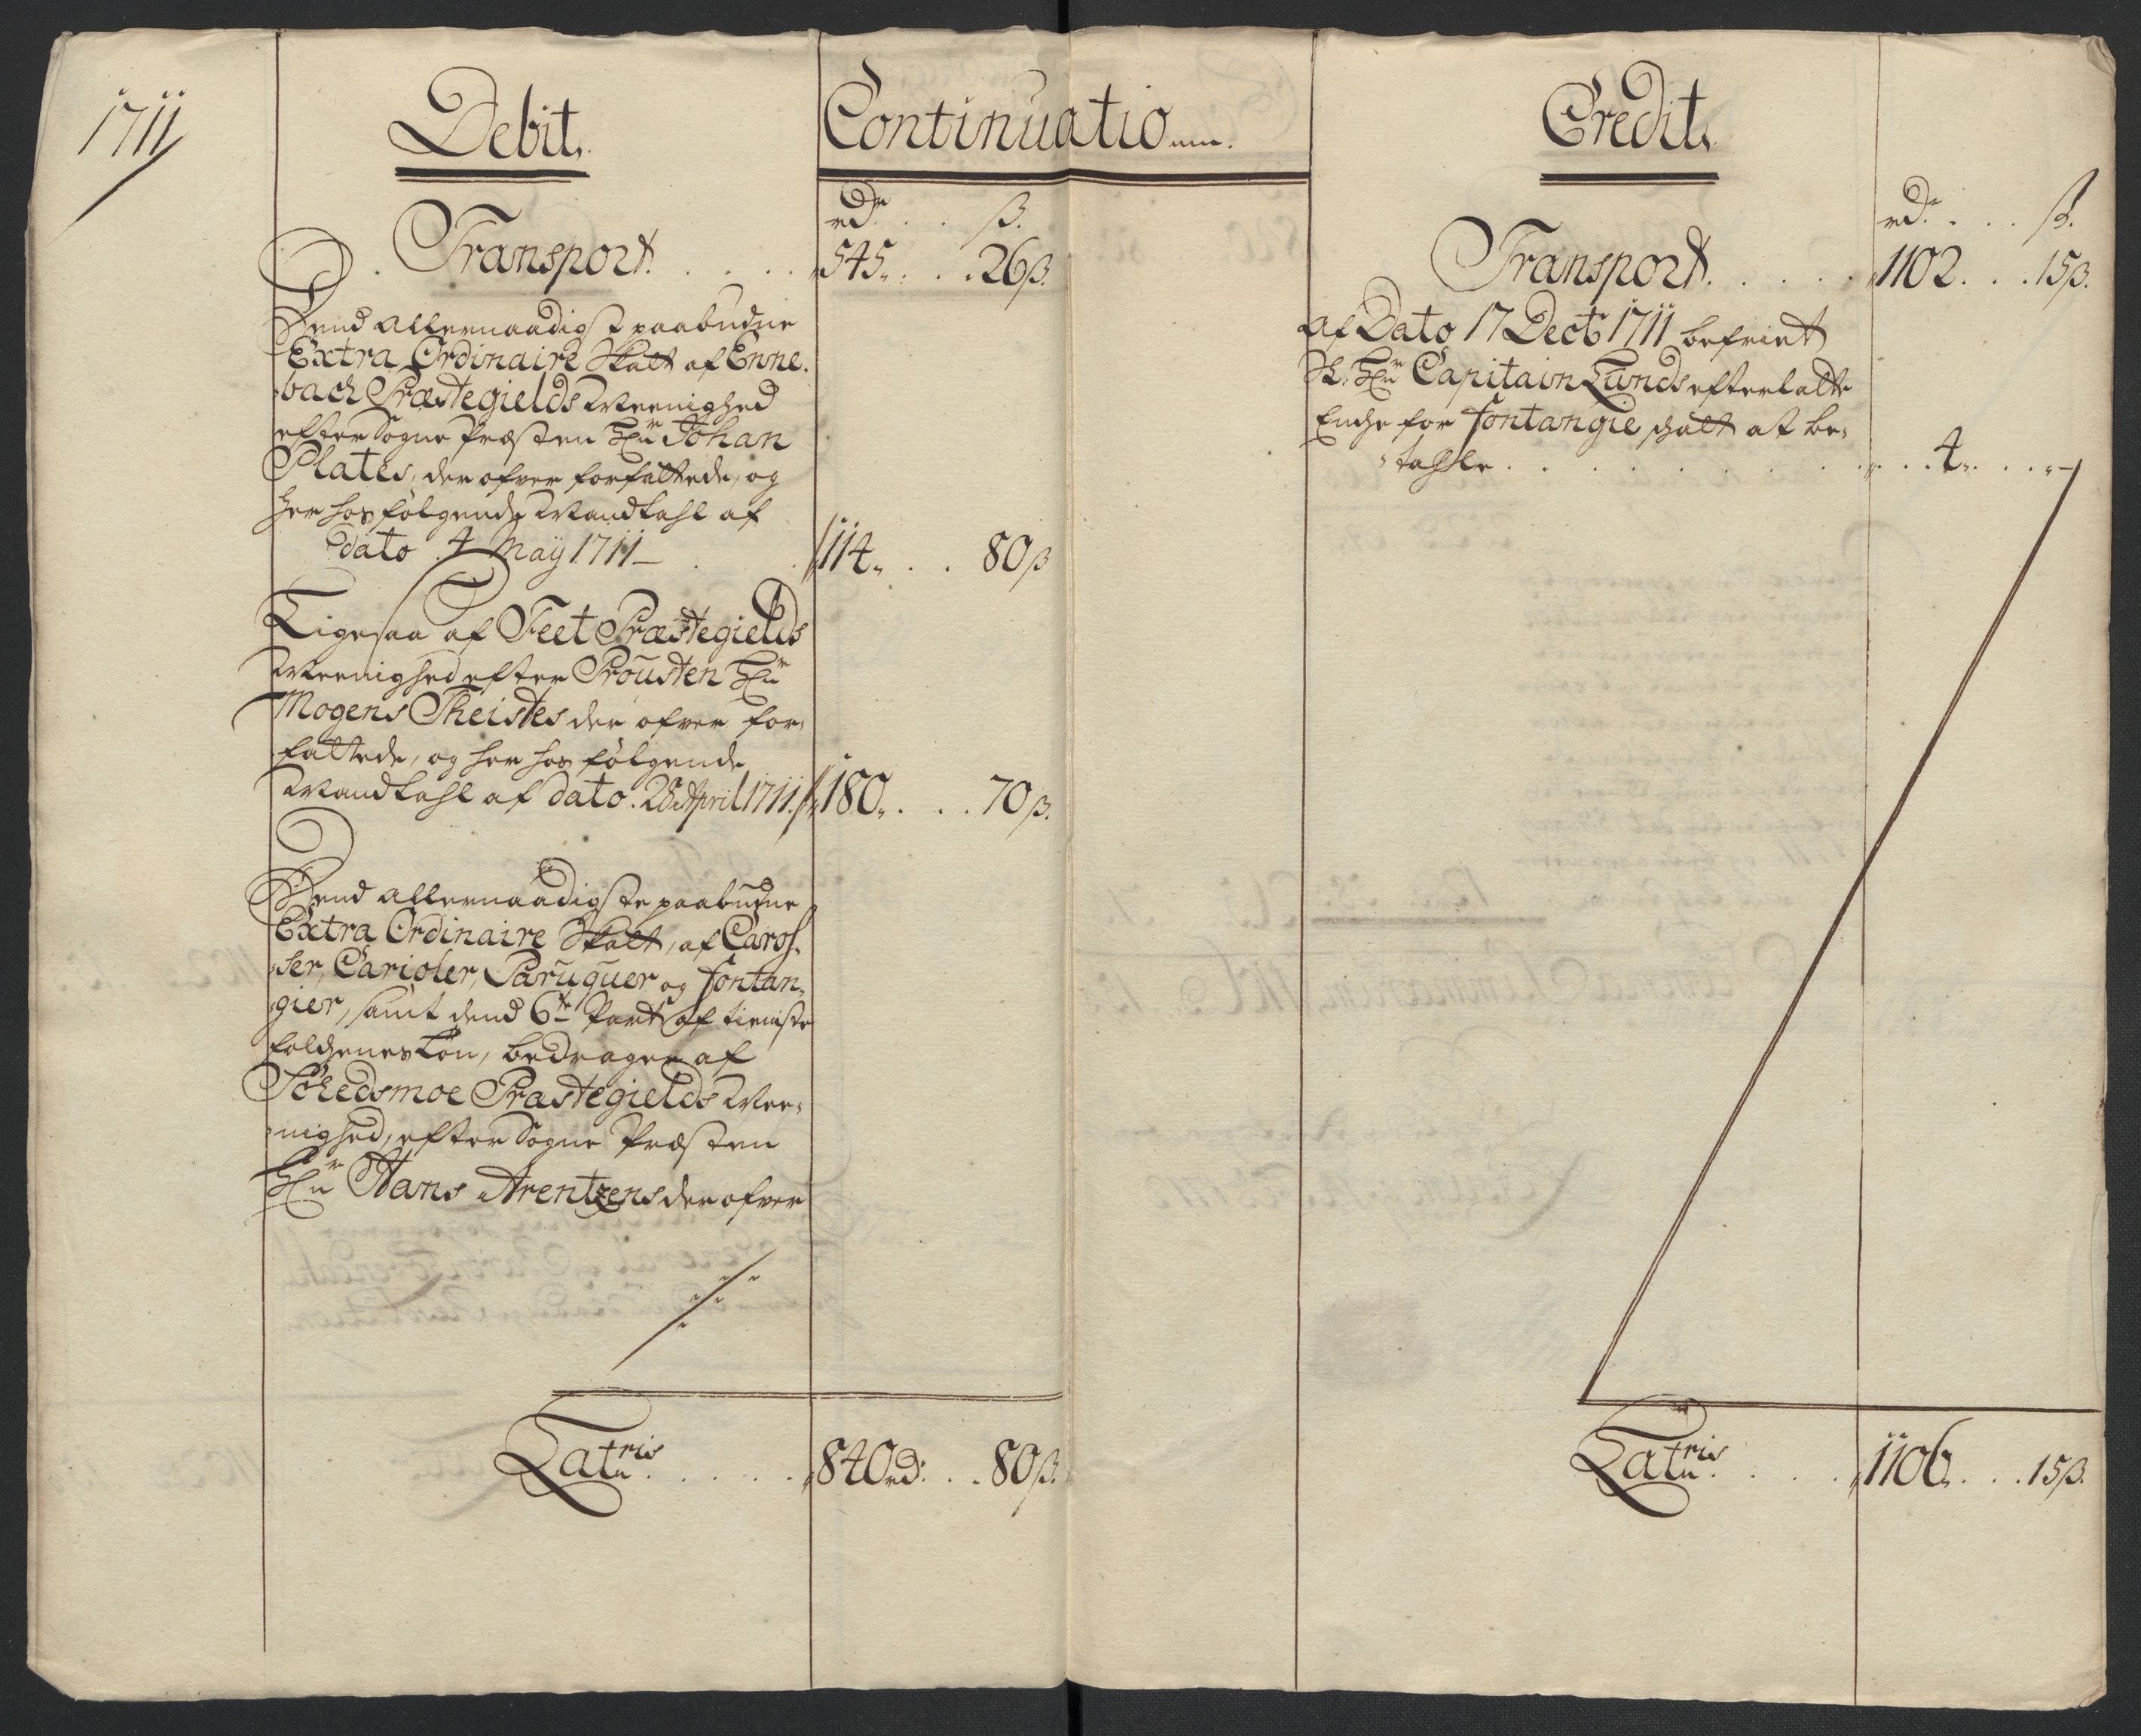 1711
Debit.
Continuatio
rdr ß.
Transport 545 26ß.
Dend allernaadigst paabudne
Extra Ordinaire Skatt af Enne-
bach Præstegields Meenighed
efter Sogne Præsten Hr Johan
Plates, der ofver forfattede, og
her hos følgende Mandtahl af
dato 4 Maÿ 1711 114 80ß
Ligesaa af Feet Præstegields
Meenighed efter Prousten Hr
Mogens Theistes der ofver for-
fattede, og her hos følgende
Mandtahl af dato 28 April 1711 180 70ß.
Dend allernaadigste paabudne
Extra Ordinaire Skatt, af Caros-
ser, Carioler, Paruquer og fontan-
gier, samt dend 6te Part af tieniste
folchenes Løn, bedragen af
Schedsmoe Præstegields Mee-
nighed, efter Sogne Præsten
Hr Hans Arentzens der ofver
Latris 840 rd: 80ß.
Credit
rdr ß.
Transport 1102 15ß.
Af Dato 17 Decbr 1711 befriet
Sl. Hr Capitain Lunds efterlatte
Enche for fontangie schatt at be-
tahle 4
Latris 1106 15ß.